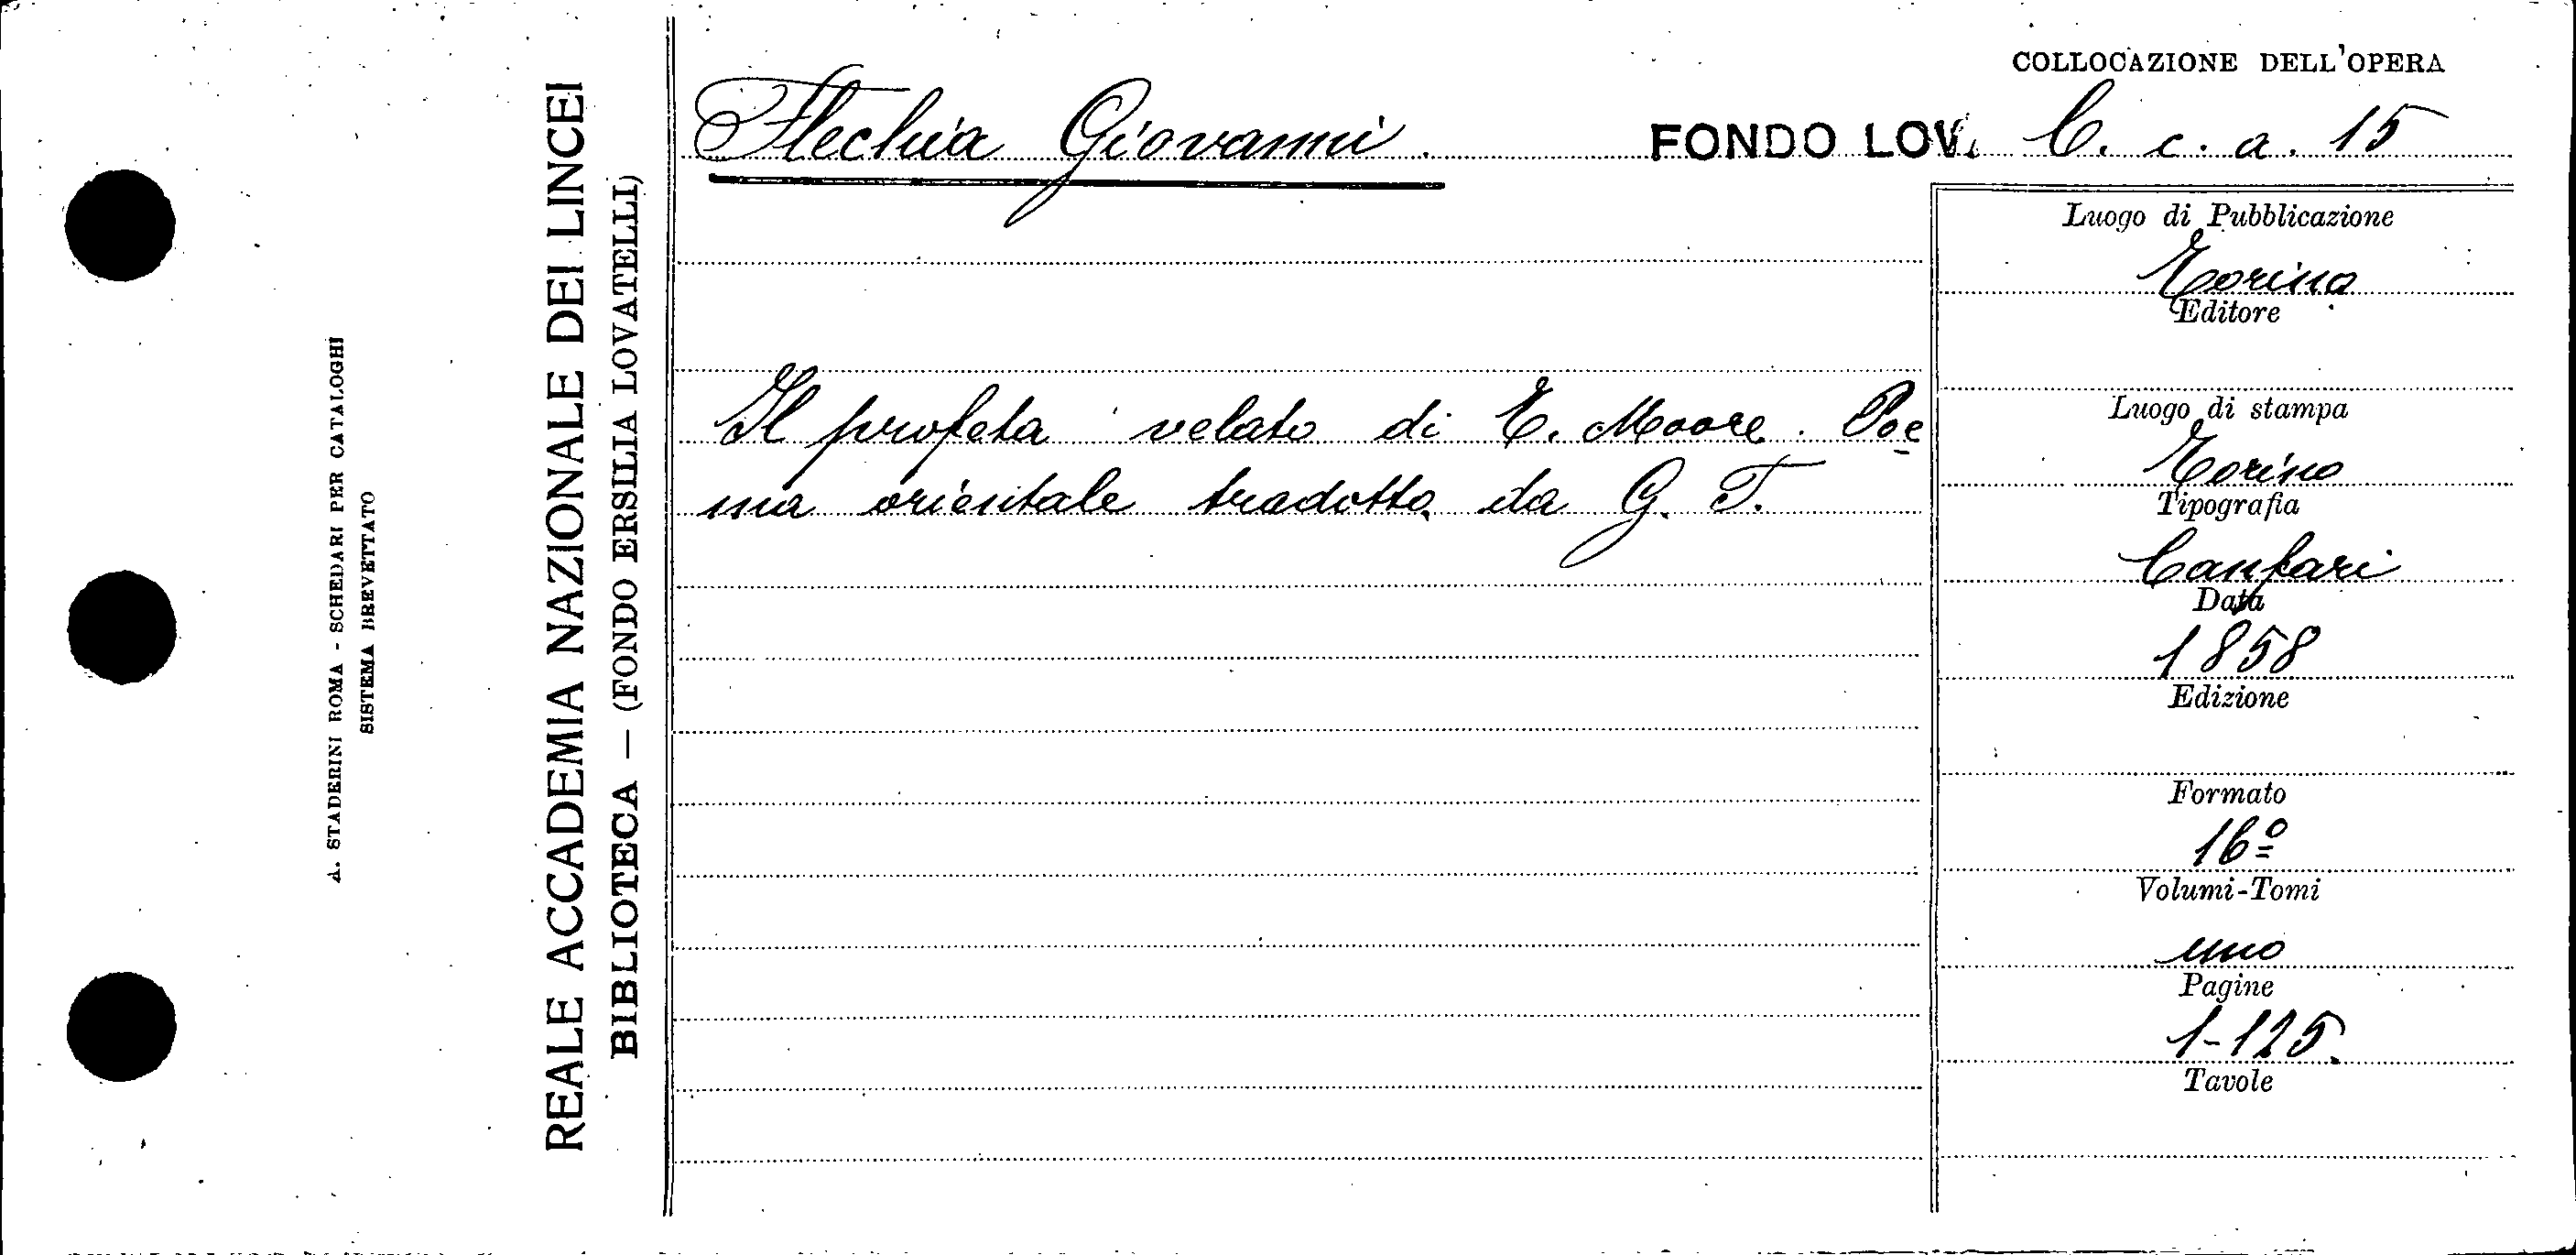 A. STADERINI ROMA - SCHEDARI PER CATALOGHI
SISTEMA BREVETTATO
REALE ACCADEMIA NAZIONALE DEI LINCEI
BIBLIOTECA — (FONDO ERSILIA LOVATELLI)
COLLOCAZIONE DELL'OPERA
Flechia Giovanni. FONDO LOV. C. c. a. 15
Il profeta velato di T. Moore. Poe
ma orientale tradotto da G. F.
Luogo di Pubblicazione
Torino
Editore
Luogo di stampa
Torino
Tipografia
Canfari
Data
1858
Edizione
Formato
16º
Volumi-Tomi
uno
Pagine
1-125.
Tavole